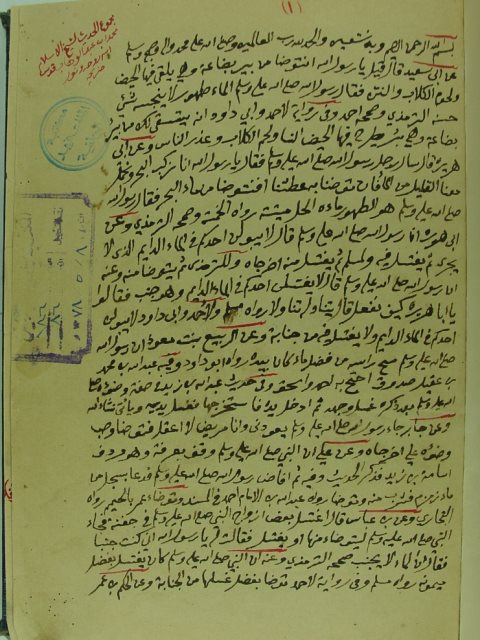 (١)
مجموع الحديث لشيخ الاسلام
محمد بن عبد الوهاب قدس
بسم الله الرحمن الرحيم وبه نستعين والحمد لله رب العالمين وصلى الله على محمد وآله وصحبه وسلم
عن ابي سعيد قال قيل يا رسول الله انتوضأ من بير بضاعة وهي بير يلقى فيها الحيض
ولحوم الكلاب والنتن فقال رسول الله صلى الله عليه وسلم الماء طهور لا ينجسه شيء
حسنه الترمذي وصححه احمد وفي رواية لاحمد وابي داود انه يستقى لك من بير
بضاعة وهي بير يطرح فيها محايض النسا ولحم الكلاب وعذر الناس وعن ابي
هريرة قال سال رجل رسول الله صلى الله عليه وسلم فقال يا رسول الله انا نركب البحر ونحمل
معنا القليل من الماء فان توضانا به عطشنا افنتوضا من ماء البحر فقال رسول الله
صلى الله عليه وسلم هو الطهور ماءه الحل ميتته رواه الخمسة وصححه الترمذي وعن
ابي هريرة ان رسول الله صلى الله عليه وسلم قال لا يبولن احدكم في الماء الدايم الذي لا
يجري ثم يغتسل فيه ولمسلم ثم يغتسل منه اخرجاه وللترمذي ثم يتوضا منه وعنه
ان رسول الله صلى الله عليه وسلم قال لا يغتسلن احدكم في الماء الدايم وهو جنب فقالوا
يا ابا هريرة كيف نفعل قال يتناوله تناولا رواه مسلم ولاحمد وابي داود لا يبولن
احدكم في الماء الدايم ولا يغتسل فيه من جنابة وعن الربيع بنت معوذ ان رسول الله
صلى الله عليه وسلم مسح راسه من فضل ماء كان بيده رواه ابو داود وفيه عبد الله بن محمد
بن عقيل صدوق احتج به احمد واسحق وفي حديث عبد الله بن زيد في صفة وضوء رسول
الله صلى الله عليه وسلم بعد ذكره غسل وجهه ثم ادخل يده فاستخرجها فغسل يديه وياتي ان شاء الله
وعن جابر جاء رسول الله صلى الله عليه وسلم يعودني وانا مريض لا اعقل فتوضا وصب
وضوءه علي اخرجاه وعن علي ان النبي صلى الله عليه وسلم وقف بعرفة وهو مردف
اسامة بن زيد فذكر الحديث وفيه ثم افاض رسول الله صلى الله عليه وسلم فدعا بسجل من
ماء زمزم فشرب منه وتوضا رواه عبد الله بن الامام احمد في المسند وتوضا عمر بالحميم رواه
البخاري وعن ابن عباس قال اغتسل بعض ازواج النبي صلى الله عليه وسلم في جفنة فجاء
النبي صلى الله عليه وسلم ليتوضا منها او يغتسل فقالت له يا رسول الله اني كنت جنبا
فقال ان الماء لا يجنب صححه الترمذي وعنه ان النبي صلى الله عليه وسلم كان يغتسل بفضل
ميمونة رواه مسلم وفي رواية لاحمد توضا بفضل غسلها من الجنابة وعن الحكم بن عمرو